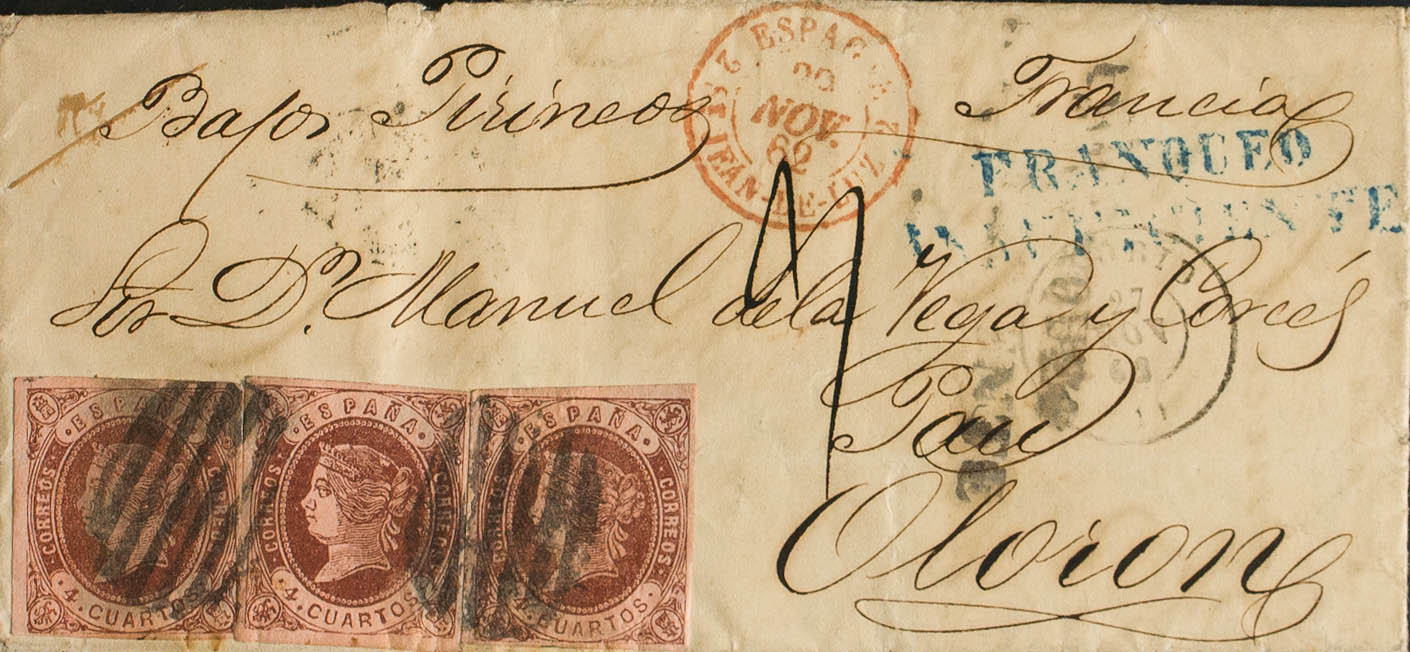 Bajos Pirineos Francia
ESPAGNE
NOV.
62
ST JEAN-DE-LUZ
2
2
FRANQUEO
INSUFICIENTE
Sor Dn. Manuel de la Vega y Cortés
27
NOV
Pau
Oloron
· ESPAÑA ·
CORREOS
CORREOS
4. CUARTOS
· ESPAÑA ·
CORREOS
CORREOS
4. CUARTOS
· ESPAÑA ·
CORREOS
CORREOS
4. CUARTOS